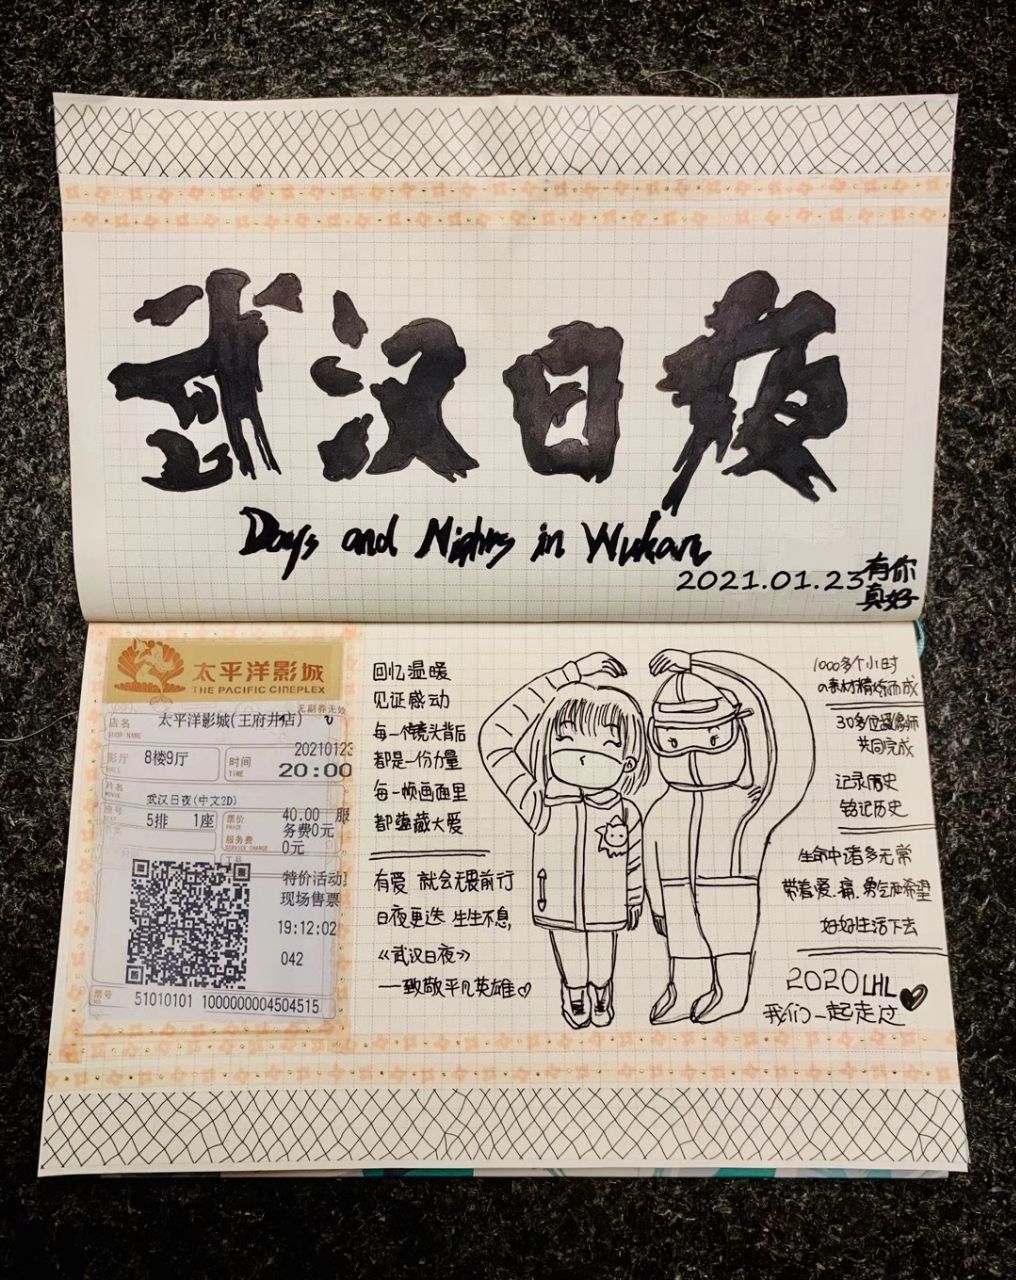 武汉日夜
Days and Nights in Wuhan
2021.01.23
有你
真好
太平洋影城
THE PACIFIC CINEPLEX
无副券无效
店名
SHOP NAME
太平洋影城(王府井店)
影厅
HALL
8楼9厅
时间
TIME
20210123
20:00
片名
MOVIE
武汉日夜(中文2D)
座号
5排 1座
票价
PRICE
40.00
服务费0元
服务费
SERVICE CHARGE
0元
特价活动
现场售票
19:12:02
042
票号
51010101 1000000004504515
回忆温暖
见证感动
每一个镜头背后
都是一份力量
每一帧画面里
都蕴藏大爱
有爱 就会无畏前行
日夜更迭 生生不息,
《武汉日夜》
一致敬平凡英雄♡
1000多个小时
の素材精炼而成
30多位摄像师
共同完成
记录历史
铭记历史
生命中诸多无常
带着爱.痛.勇气和希望
好好生活下去
2020LHL
我们一起走过